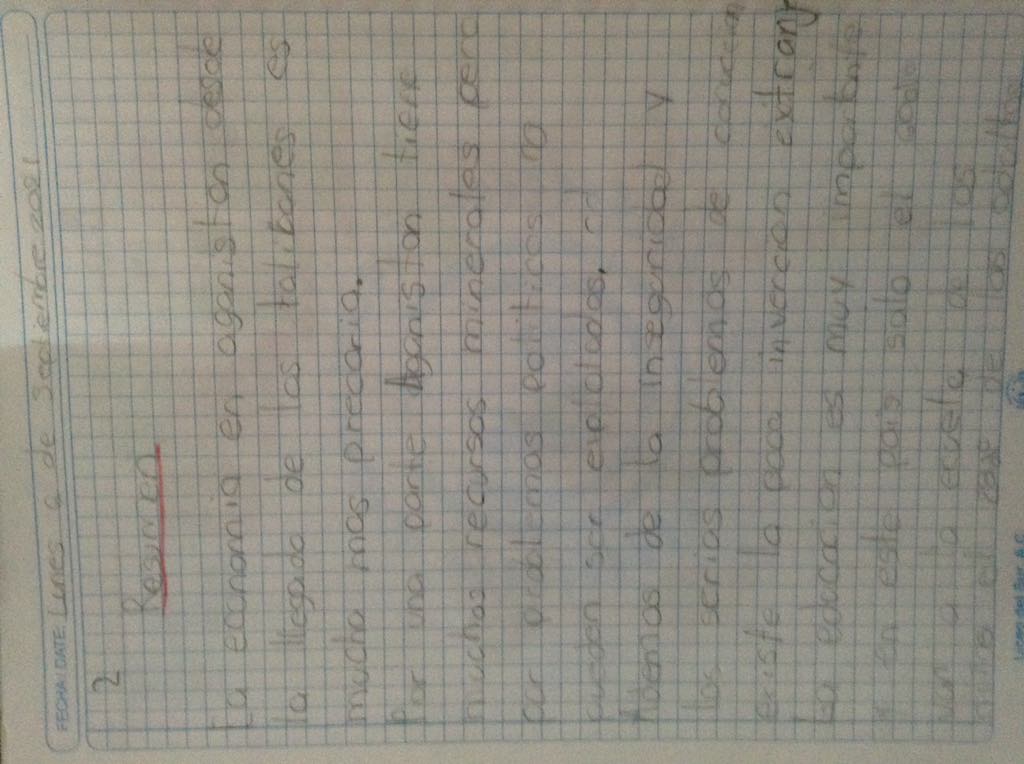 FECHA / DATE: Lunes 6 de Septiembre 2021
2
Resumen
La economia en aganistan desde
la llegada de los talibanes es
mucha mas precaria.
Por una parte Aganistan tiene
muchos recursos minerales pero
por problemas politicos no
pueden ser explotados, ni
Abemos de la inseguridad y
los serios problemas de
existe la poca invercion extranj
La educacion es muy importante
en este pais solo el
a la escuela de los
el de los adultos